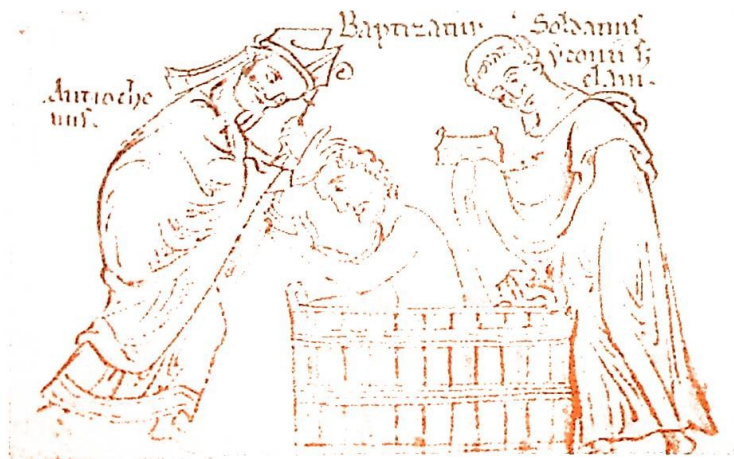 Antioche
nus.
Baptizatur Soldanus
yconii sꝫ
clam.